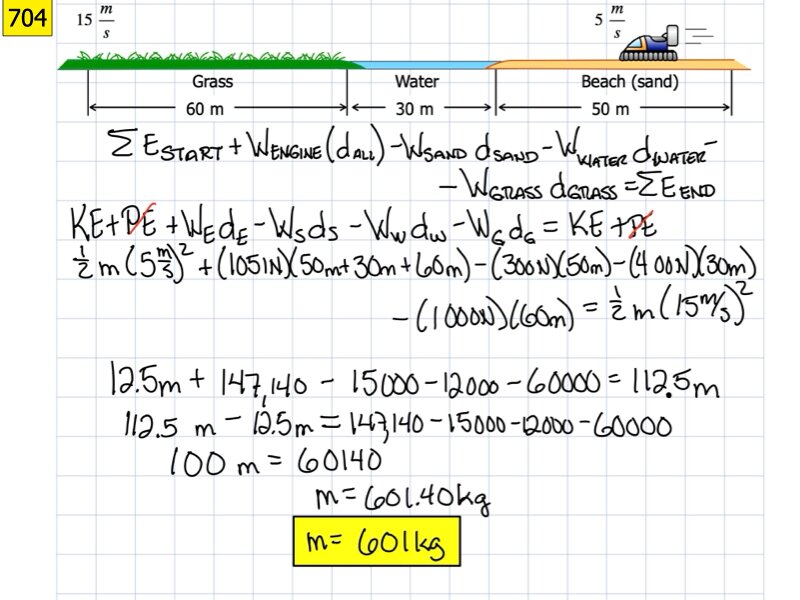 704
15 m/s 5 m/s
Grass Water Beach (sand)
60 m 30 m 50 m
ΣE START + W ENGINE (d ALL) - W SAND d SAND - W WATER d WATER -
- W GRASS d GRASS = ΣE END
KE + PE + W_E d_E - W_S d_S - W_W d_W - W_G d_G = KE + PE
1/2 m (5 m/s)² + (1051N)(50m+30m+60m) - (300N)(50m) - (400N)(30m)
- (1000N)(60m) = 1/2 m (15 m/s)²
12.5m + 147,140 - 15000 - 12000 - 60000 = 112.5m
112.5 m - 12.5m = 147,140 - 15000 - 12000 - 60000
100 m = 60140
m = 601.40kg
m = 601kg